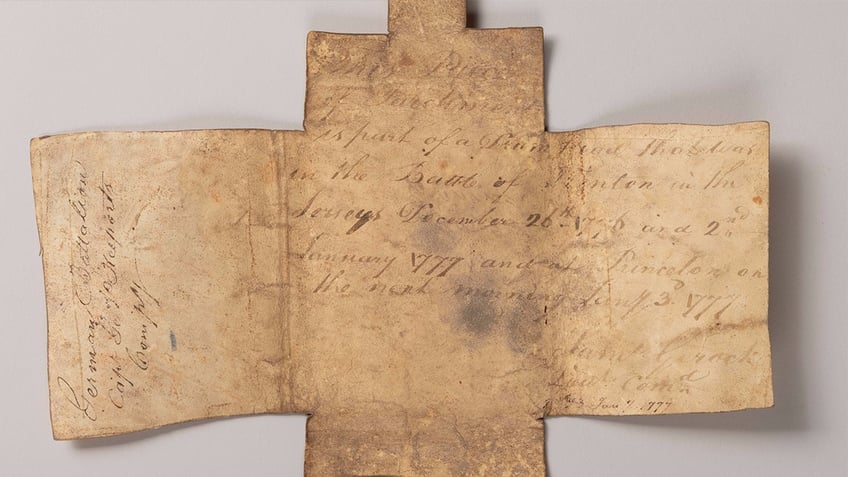 This Piece
of Parchment
is part of a Drum Head that was
in the Battle of Trenton in the
Jerseys December 26th 1776 and 2nd
January 1777 and at Princeton on
the next morning Jany 3d 1777
Lieut Comd
Jany 7, 1777
German Battalion
Capt
Compy